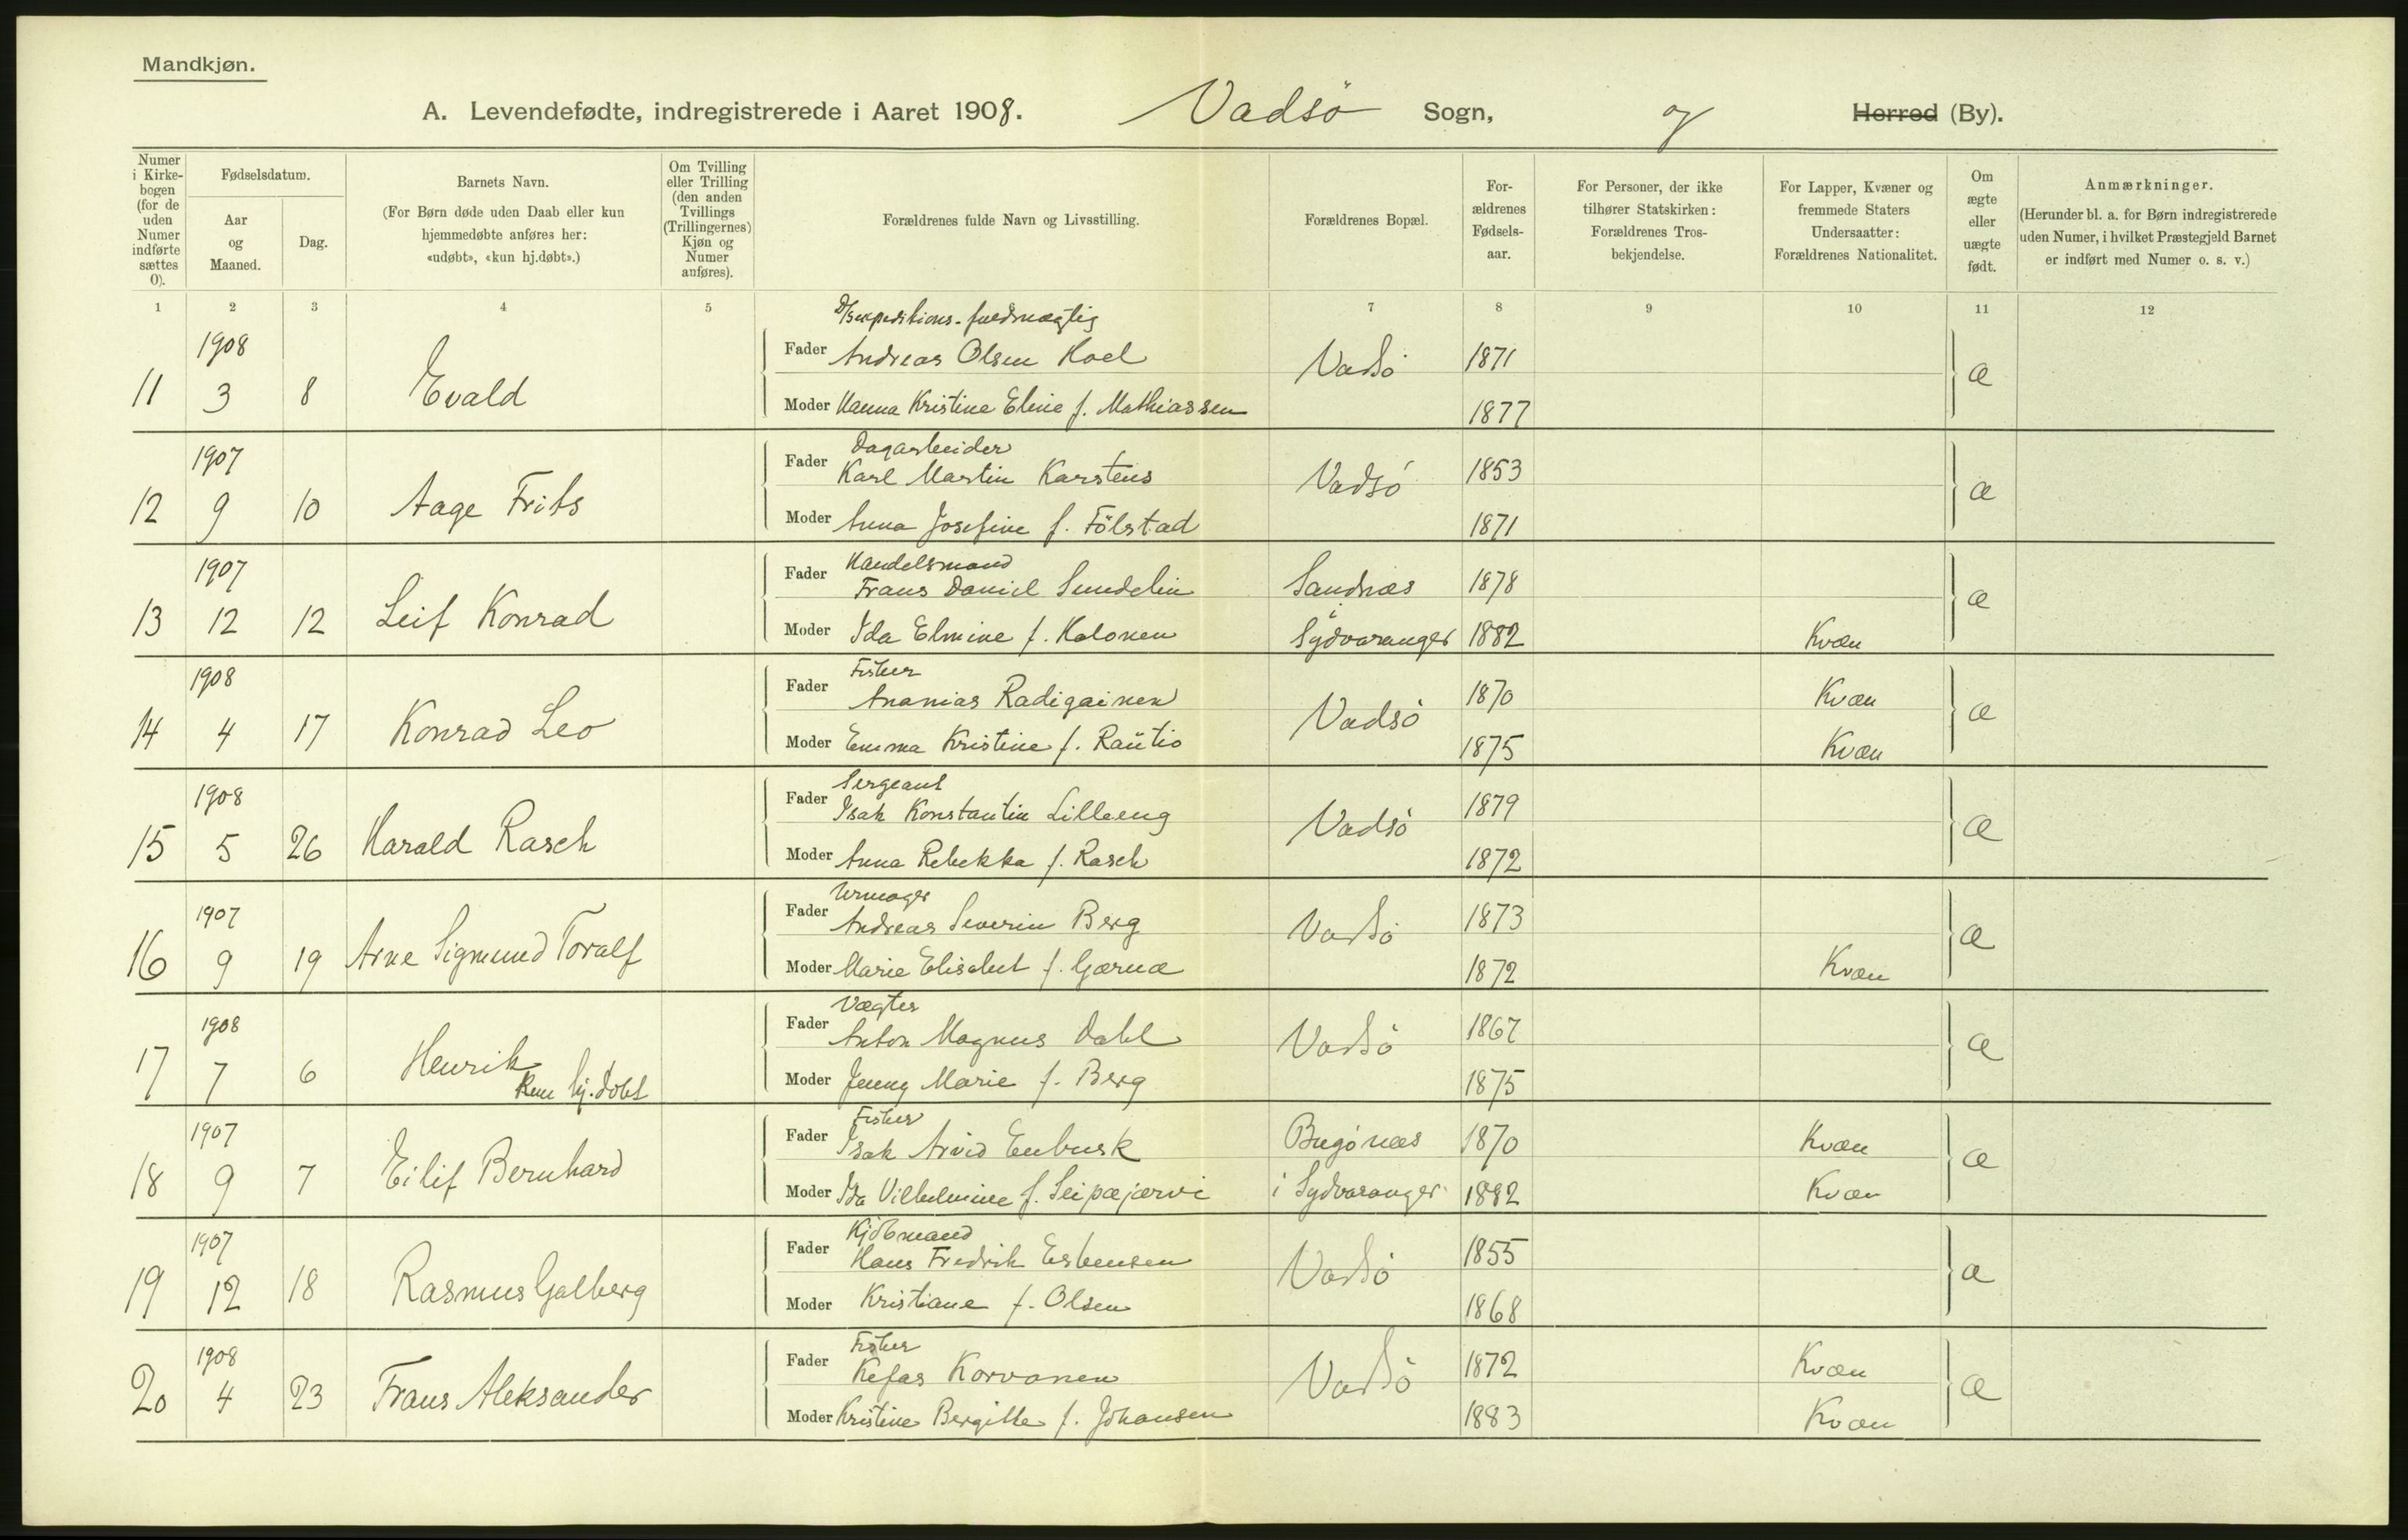 Mandkjøn.
A. Levendefødte, indregistrerede i Aaret 1908. Vadsö Sogn, og Herred (By).
Numer i Kirkebogen (for de uden Numer indførte sættes 0).
Fødselsdatum.
Aar og Maaned.
Dag.
Barnets Navn.
(For Børn døde uden Daab eller kun hjemmedøbte anføres her: «udøbt», «kun hj.døbt».)
Om Tvilling eller Trilling (den anden Tvillings (Trillingernes) Kjøn og Numer anføres).
Forældrenes fulde Navn og Livsstilling.
Forældrenes Bopæl.
Forældrenes Fødselsaar.
For Personer, der ikke tilhører Statskirken: Forældrenes Trosbekjendelse.
For Lapper, Kvæner og fremmede Staters Undersaatter: Forældrenes Nationalitet.
Om ægte eller uægte født.
Anmærkninger.
(Herunder bl. a. for Børn indregistrerede uden Numer, i hvilket Præstegjeld Barnet er indført med Numer o. s. v.)
1 2 3 4 5 7 8 9 10 11 12
D/Sexpeditions-fuldmægtig
1908
11 3 8 Evald Fader Andreas Olsen Hoel Vadsö 1871 æ
Moder Hanna Kristine Eline f. Mathiassen 1877
1907 Dagarbeider
12 9 10 Aage Frits Fader Karl Martin Karstens Vadsö 1853 æ
Moder Anna Josefine f. Fölstad 1871
1907 Handelsmand
13 12 12 Leif Konrad Fader Frans Daniel Sundelin Sandnæs 1878 æ
Moder Ida Elmine f. Halonen i Sydvaranger 1882 Kvæn
1908 Fisker
14 4 17 Konrad Leo Fader Ananias Radigainen Vadsö 1870 Kvæn æ
Moder Emma Kristine f. Rautio 1875 Kvæn
1908 Sergeant
15 5 26 Harald Rasch Fader Isak Konstantin Lilleeng Vadsö 1879 æ
Moder Anna Rebekka f. Rasch 1872
1907 Urmager
16 9 19 Arne Sigmund Toralf Fader Andreas Severin Berg Vadsö 1873 æ
Moder Marie Elisabet f. 1872 Kvæn
1908 Vægter
17 7 6 Henrik Kun hj.döbt Fader Anton Magnus Dahl Vadsö 1867 æ
Moder Jenny Marie f. Berg 1875
1907 Fisker
18 9 7 Eilif Bernhard Fader Isak Arvid Enbusk Bugönæs 1870 Kvæn æ
Moder Ida Vilhelmine f. Seipæjærvi i Sydvaranger 1882 Kvæn
1907 Kjöbmand
19 12 18 Rasmus Galberg Fader Hans Fredrik Esbensen Vadsö 1855 æ
Moder Kristiane f. Olsen 1868
1908 Fisker
20 4 23 Frans Aleksander Fader Kefas Korvanen Vadsö 1872 Kvæn æ
Moder Kristine Bergitte f. Johansen 1883 Kvæn